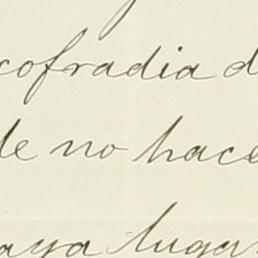 cofradia d
de no hace
aya lugar